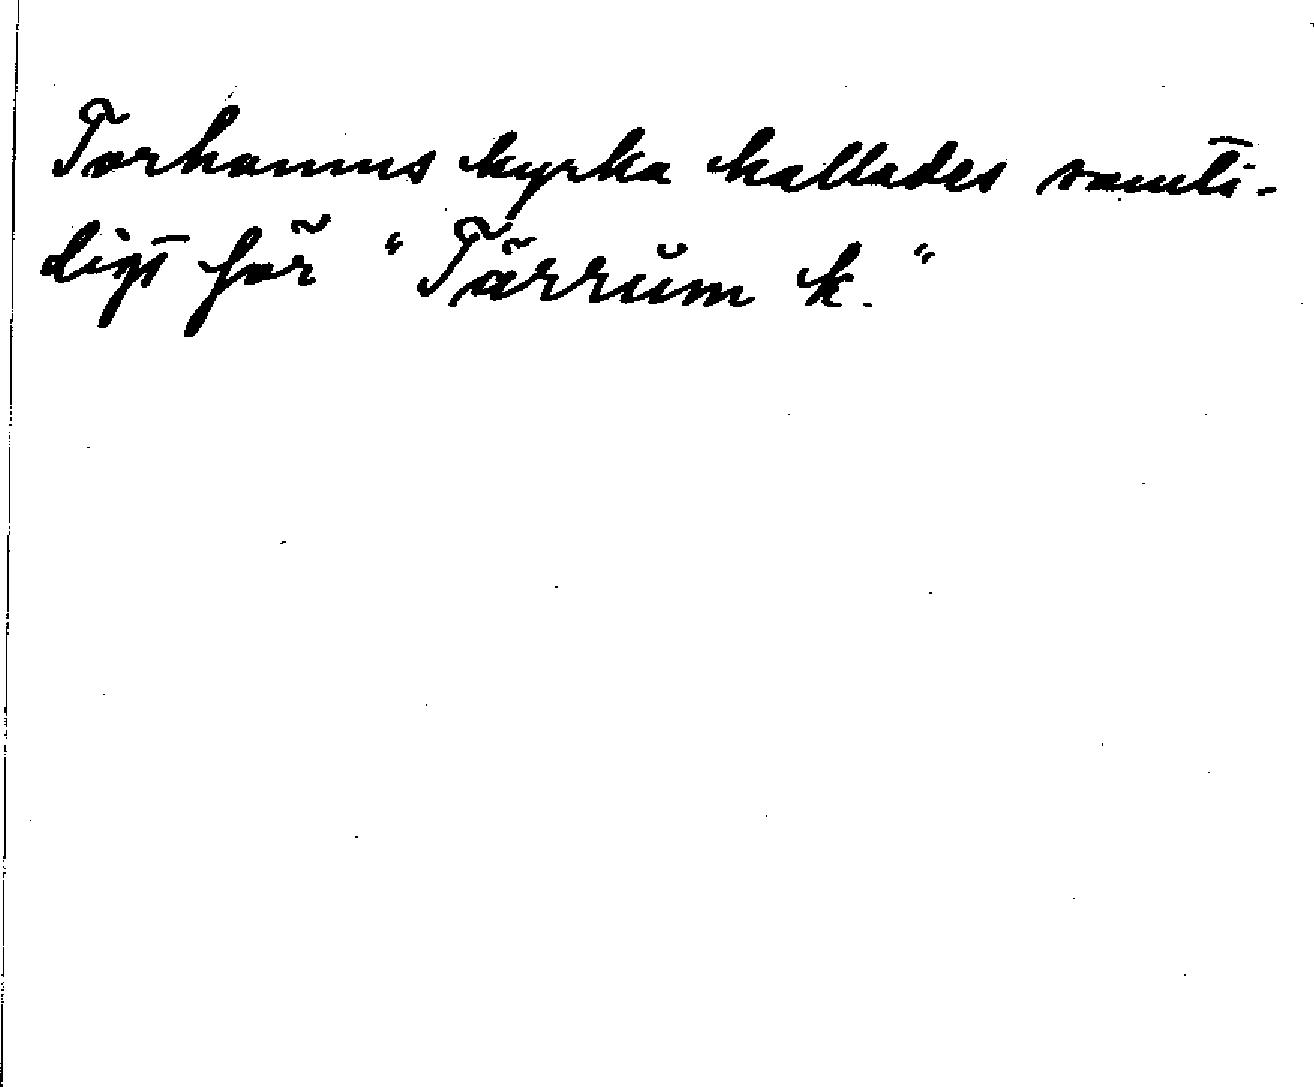 Torhamns kyrka kallades samti-
digt för "Tärrum k."